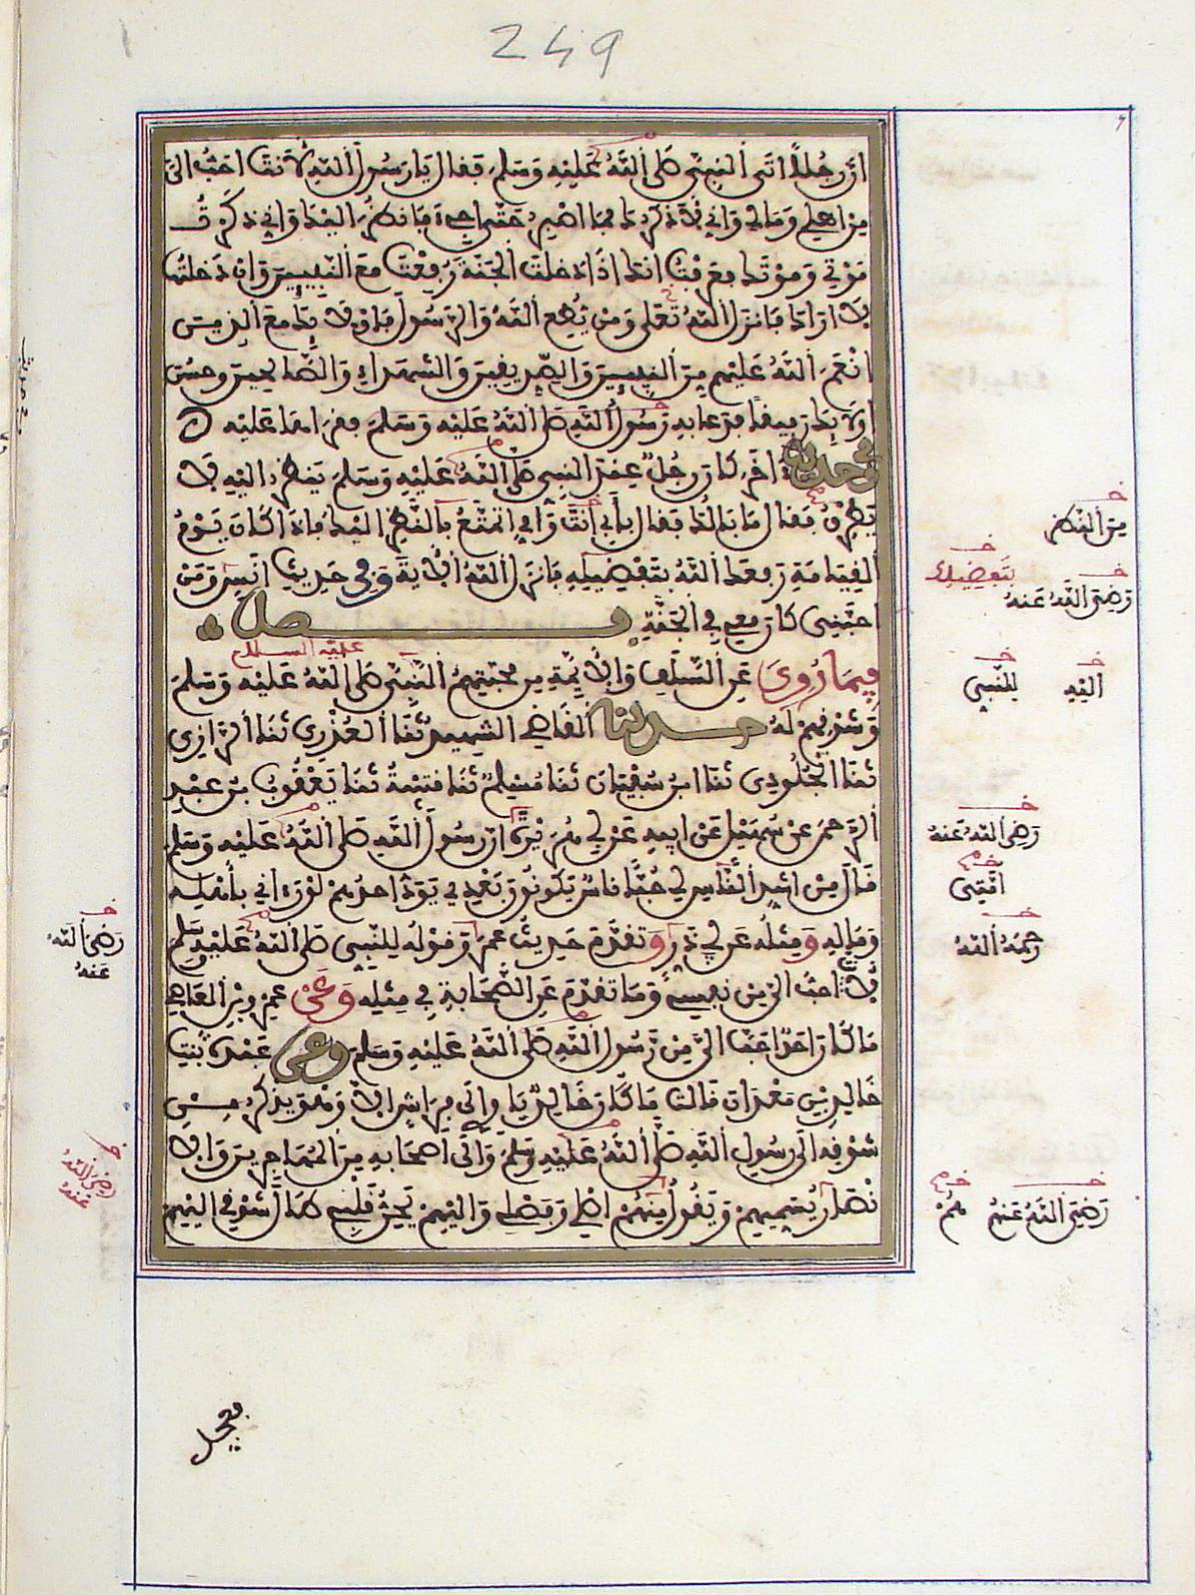 249
ان رجلا اتى النبي صلى الله عليه وسلم فقال يا رسول الله لانت احب الي
من اهلي ومالي واني لاذكرك فما اصبر حتى اجيء فانظر اليك واني ذكرت
موتي وموتك فعرفت انك اذا دخلت الجنة رفعت مع النبيين وان دخلتها
لا اراك فانزل الله تعلى ومن يطع الله والرسول فاوليك مع الذين
انعم الله عليهم من النبيين والصديقين والشهداء والصالحين وحسن
اوليك رفيقا فدعا به رسول الله صلى الله عليه وسلم فقراها عليه
وفي حديث اخر كان رجل عند النبي صلى الله عليه وسلم ينظر اليه لا
يطرف فقال ما بالك فقال بابي انت وامي اتمتع بالنظر اليك فاذا كان يوم
القيامة رفعك الله بتفضيله فانزل الله الاية وفي حديث انس ومن
احبني كان معي في الجنة فصل
عليه السلام
فيما روي عن السلف والايمة من محبتهم النبي صلى الله عليه وسلم
وشوقهم له حدثنا القاضي الشهيد ثنا العذري ثنا الرازي
ثنا الجلودي ثنا ابن سفيان ثنا مسلم ثنا قتيبة ثنا يعقوب بن عبد
الرحمن عن سهيل عن ابيه عن ابي هريرة ان رسول الله صلى الله عليه وسلم
قال من اشد الناس لي حبا ناس يكونون بعدي يود احدهم لو رءاني باهله
وماله ومثله عن ابي ذر وتقدم حديث عمر وقوله للنبي صلى الله عليه وسلم
لانت احب الي من نفسي وما تقدم عن الصحابة في مثله وعن عمرو بن العاصي
ما كان احد احب الي من رسول الله صلى الله عليه وسلم وعن عبدة بنت
خالد بن معدان قالت ما كان خالد ياوي الى فراش الا وهو يذكر من
شوقه الى رسول الله صلى الله عليه وسلم والى اصحابه من المهاجرين والا
نصار يسميهم ويقول هم اصلي وفصلي واليهم يحن قلبي طال شوقي اليهم
من النظر
بتفضيلك
رضي الله عنه
اليه
للنبي
رضي الله عنه
امتي
رحمه الله
رضي الله عنهم
هم
رضي الله
عنه
رضي الله
عنه
فعجل